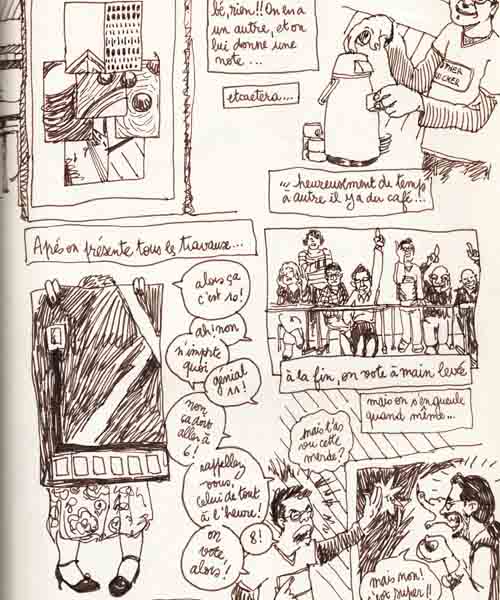 bé, rien!! On en a
un autre, et on
lui donne une
note...
etcaetera....
... heureusement du temps
à autre il y a du café...
Apès on présente tous les travaux...
alors ça
c'est 10!
ah! non
n'importe
quoi
génial
15!
non
ça doit
aller à
6!
rappellez
vous,
celui de tout
à l'heure!
on
vote,
alors!
8!
à la fin, on vote à main levée
mais on s'engueule
quand même...
mais t'as
vu cette
merde?
mais non!
c'est super!!